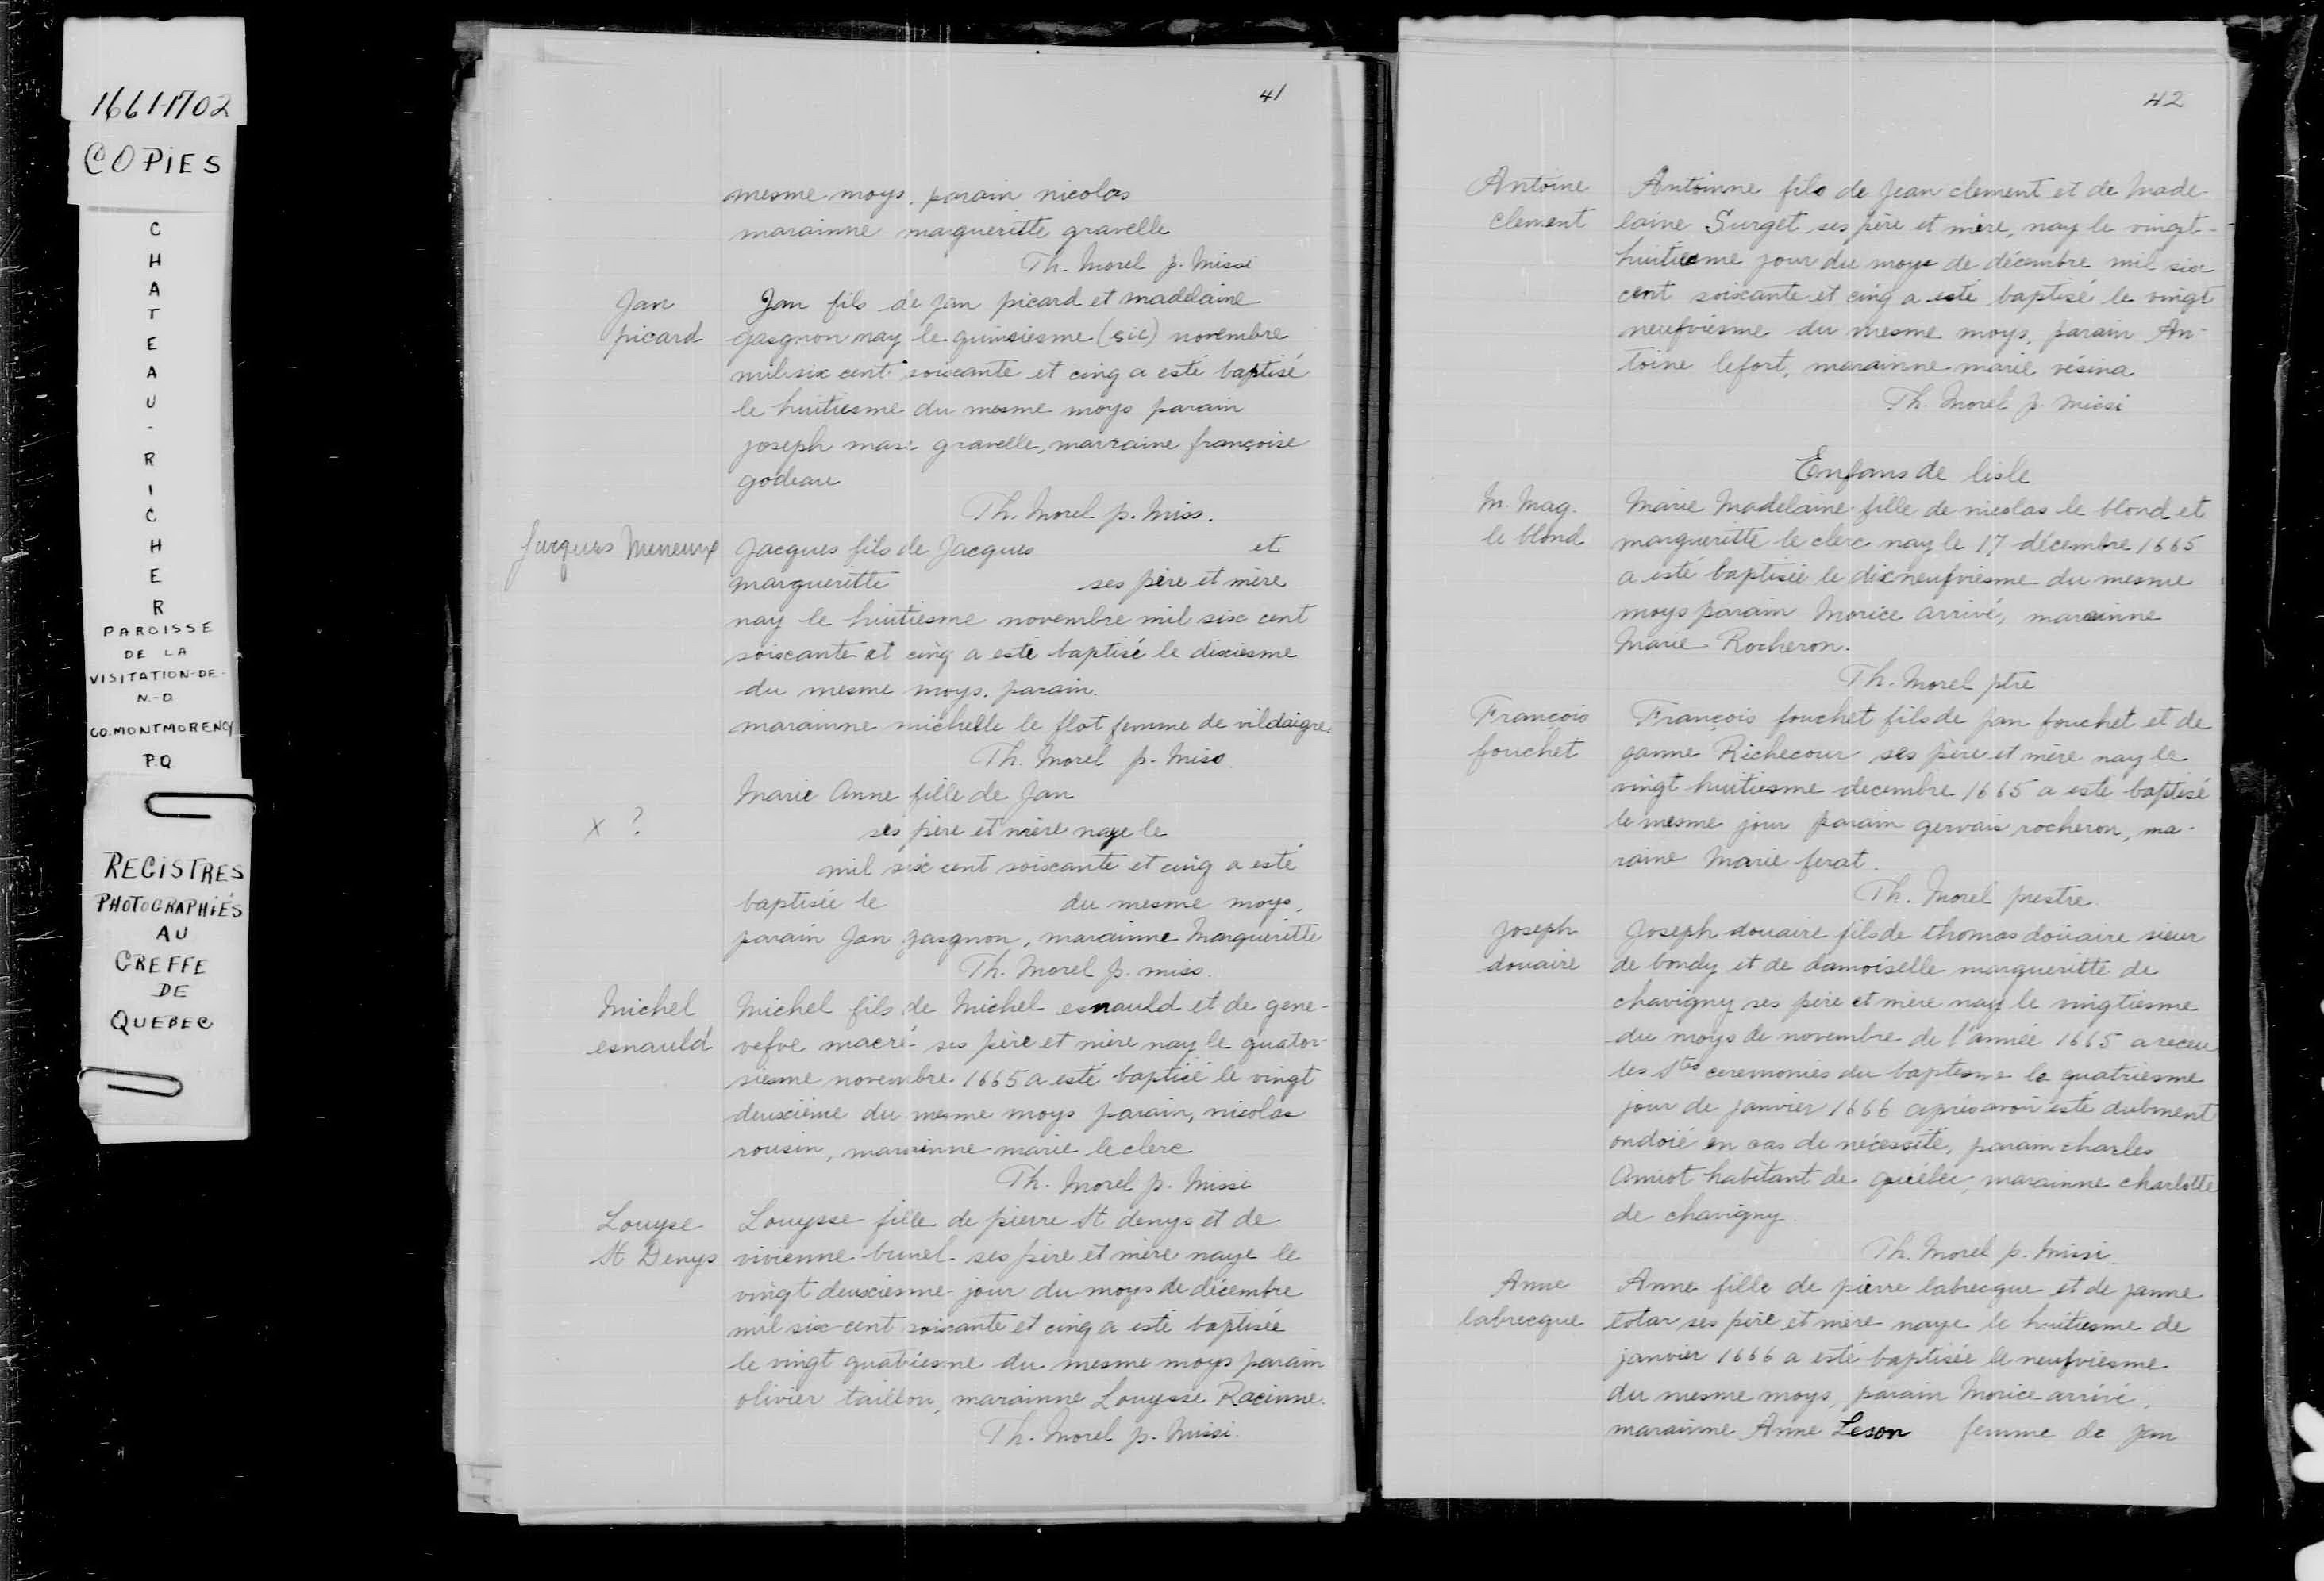 1661-1702
COPIES
CHATEAU-RICHER
PAROISSE
DE LA
VISITATION-DE-
N.-D.
CO. MONTMORENCY
P.Q
REGISTRES
PHOTOGRAPHIÉS
AU
GREFFE
DE
QUEBEC
41
mesme moys. parain nicolas
marainne margueritte gravelle
Th. Morel p. Missi
Jan picard
Jan fils de jan picard et madelaine
gasgnon nay le quinsiesme (sic) novembre
mil six cent soixante et cinq a esté baptisé
le huitiesme du mesme moys parain
joseph mas. gravelle, marraine françoise
godeau
Th. Morel p. Miss.
Jacques Meneux
Jacques fils de Jacques et
margueritte ses père et mère
nay le huitiesme novembre mil six cent
soixante et cinq a esté baptisé le dixiesme
du mesme moys. parain.
marainne michelle le flot femme de vildaigre.
Th. Morel p. Miss
x ?
Marie Anne fille de Jan
ses père et mère naye le
mil six cent soixante et cinq a esté
baptisée le du mesme moys,
parain Jan gasgnon, marainne Margueritte
Th. Morel p. miss.
Michel esnauld
Michel fils de Michel esnauld et de gene-
vefve macré ses père et mère nay le quator-
siesme novembre 1665 a esté baptisé le vingt
deuxième du mesme moys parain, nicolas
rousin, marainne marie leclerc
Th. Morel p. Missi
Louyse St Denys
Louysse fille de pierre St denys et de
vivienne bunel ses père et mère naye le
vingt deuxiesme jour du moys de décembre
mil six cent soixante et cinq a esté baptisée
le vingt quatriesme du mesme moys parain
olivier taillou, marainne Louysse Racinne.
Th. Morel p. Missi.
42
Antoine clement
Antoinne fils de Jean clement et de Made-
laine Surget ses père et mère, nay le vingt-
huitiesme jour du moys de décembre mil six
cent soixante et cinq a esté baptisé le vingt
neufviesme du mesme moys, parain An-
toine lefort, marainne marie vésina
Th. Morel p. Missi
Enfans de lisle
M. Mag. le blond
Marie Madelaine fille de nicolas le blond et
margueritte le clerc nay le 17 décembre 1665
a esté baptisée le dixneufviesme du mesme
moys parain Morice arrivé, marainne
Marie Rocheron.
Th. Morel ptre
François fouchet
François fouchet fils de jan fouchet et de
ganne Richecour ses père et mère nay le
vingt huitiesme decembre 1665 a esté baptisé
le mesme jour parain gervais rocheron, ma-
raine Marie ferat.
Th. Morel prestre.
Joseph douaire
Joseph douaire fils de thomas doüaire sieur
de bondy et de damoiselle margueritte de
chavigny ses père et mère nay le vingtiesme
du moys de novembre de l'année 1665 a receu
les Stes ceremonies du baptesme le quatriesme
jour de janvier 1666 après avoir esté dubment
ondoié en cas de nécessité, parain charles
Amiot habitant de québec, marainne charlotte
de chavigny.
Th. Morel p. Missi.
Anne labrecque
Anne fille de pierre labrecque et de janne
totar, ses père et mère naye le huitiesme de
janvier 1666 a esté baptisée le neufviesme
du mesme moys, parain Morice arrivé,
marainne Anne Leson femme de jan